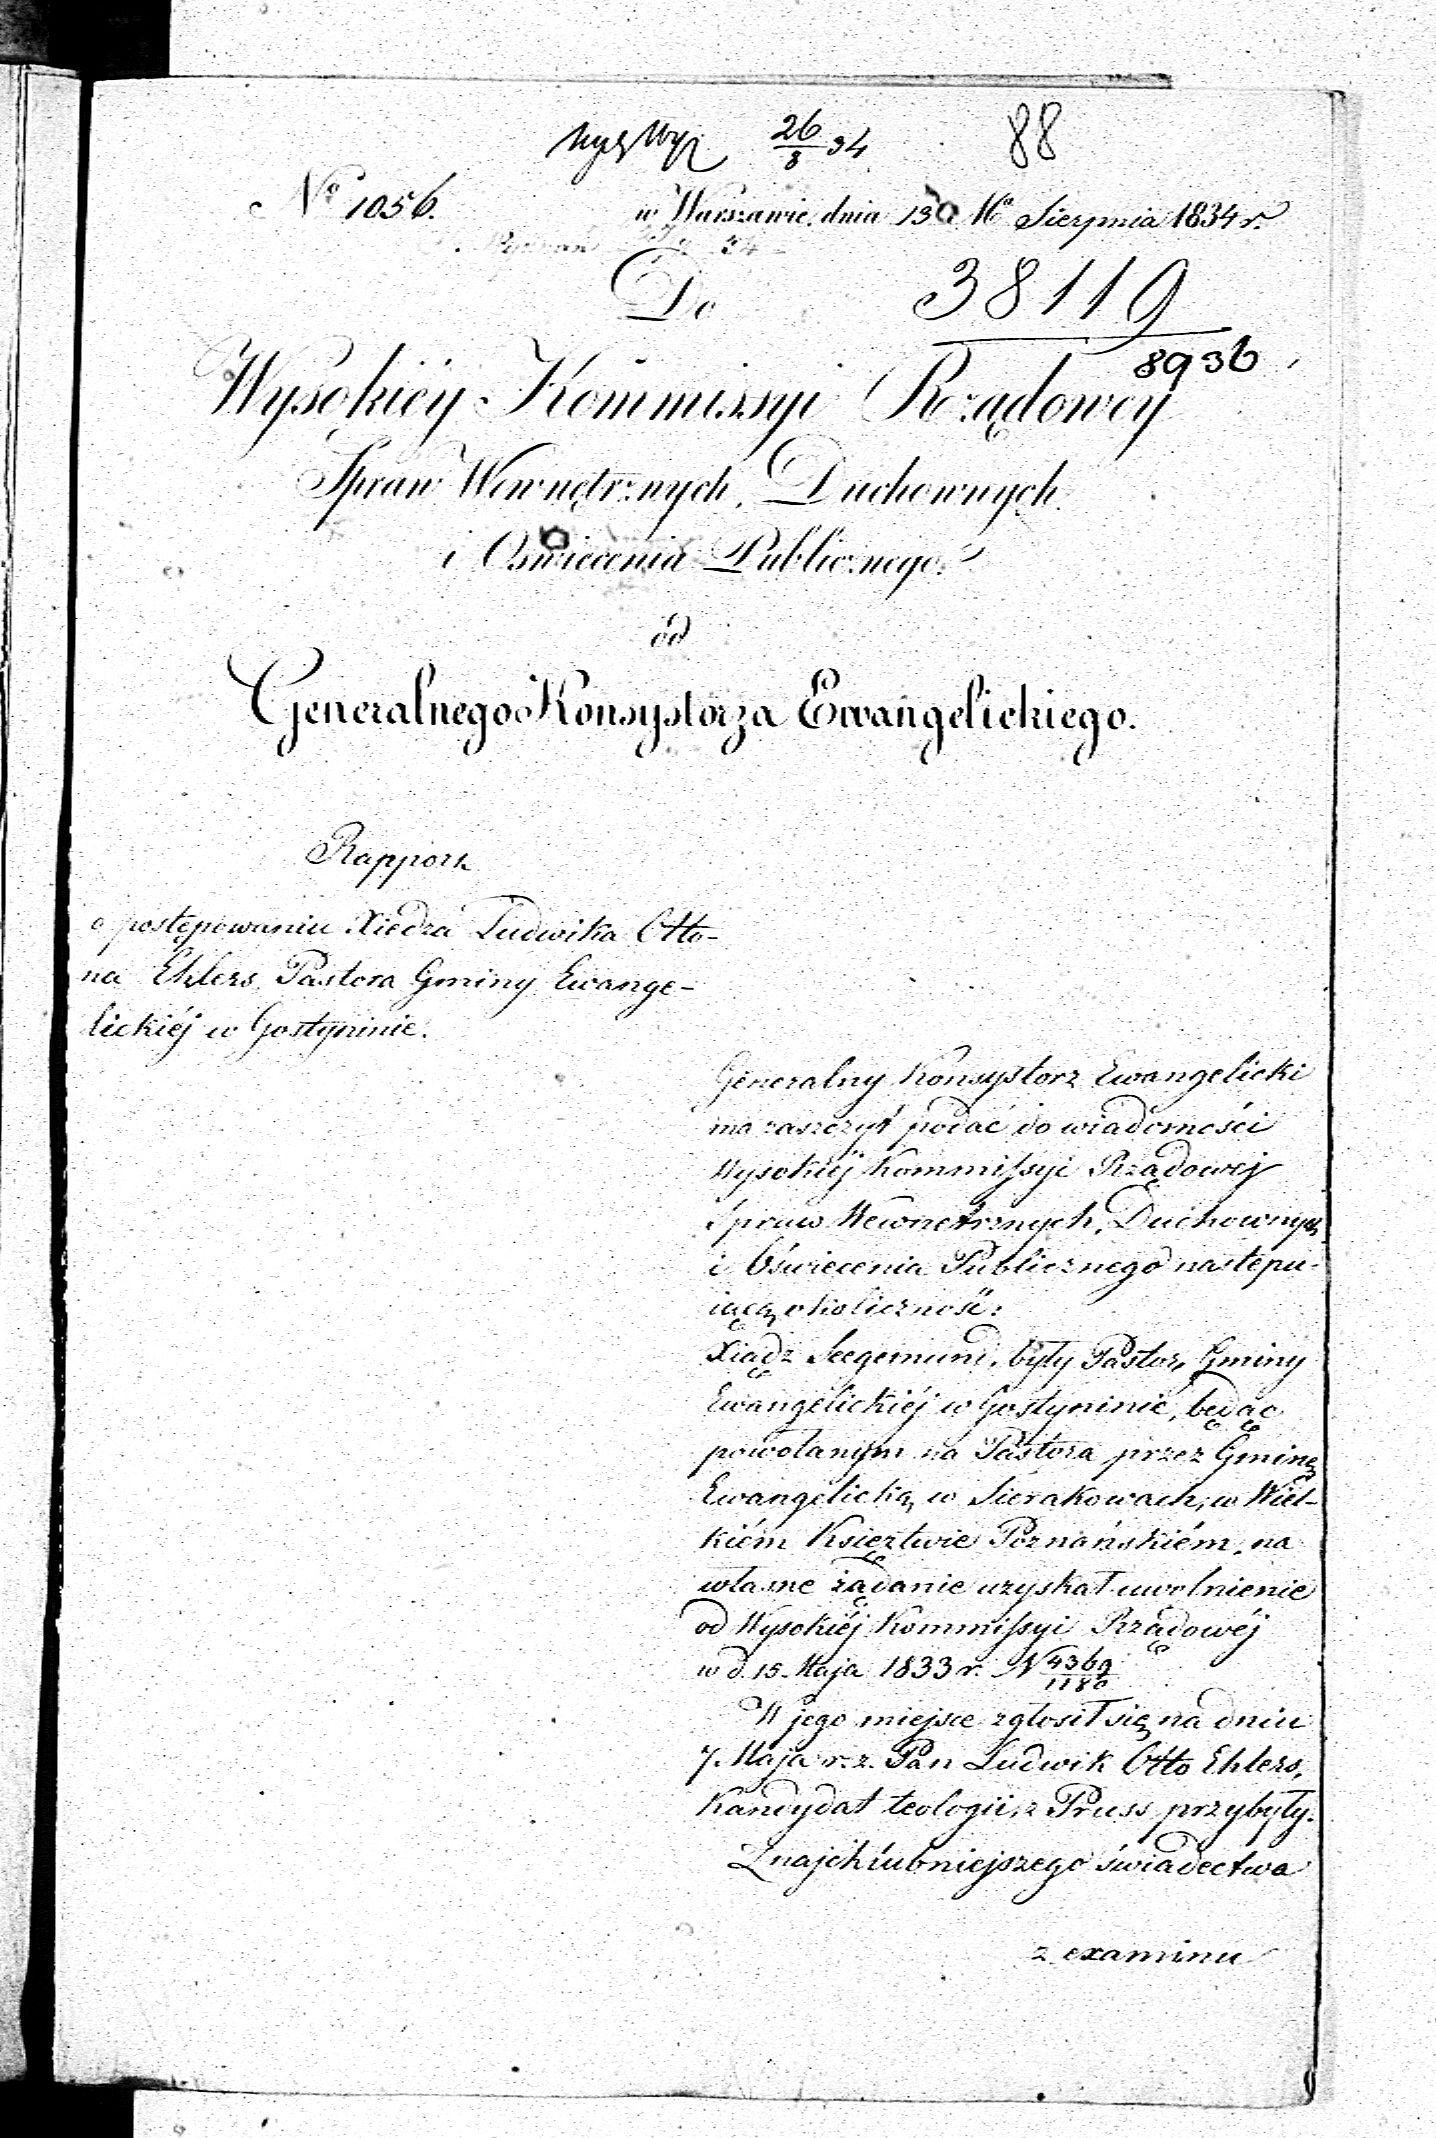 26/8 34
88
No 1056.
w Warszawie, dnia 13 Sierpnia 1834 r.
Do
38119
8936
Wysokiéy Kommissyi Rządowéy
Spraw Wewnętrznych, Duchownych
i Oświecenia Publicznego.
od
Generalnego Konsystorza Ewangelickiego.
Rapport
o postępowaniu Xiędza Ludwika Otto-
na Ehlers Pastora Gminy Ewange-
lickiéj w Gostyninie.
Generalny Konsystorz Ewangelicki
ma zaszczyt podać do wiadomości
Wysokiéj Kommissyi Rządowéj
Spraw Wewnętrznych, Duchownych
i Oświecenia Publicznego następu-
iącą okoliczność:
Xiądz Seegemund, były Pastor Gminy
Ewangelickiéj w Gostyninie, będąc
powołanym na Pastora przez Gminę
Ewangelicką w Sierakowach, w Wiel-
kiém Księztwie Poznańskiém, na
własne żądanie uzyskał uwolnienie
od Wysokiéj Kommissyi Rządowéj
w d. 15. Maja 1833 r. N 4369/1180
W jego miejsce zgłosił się na dniu
7. Maja r. z. Pan Ludwik Otto Ehlers,
Kandydat teologii, z Pruss przybyły.
Z najchlubniejszego świadectwa
z examinu